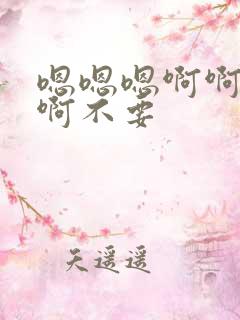 嗯嗯嗯啊啊
啊不要
天遥遥